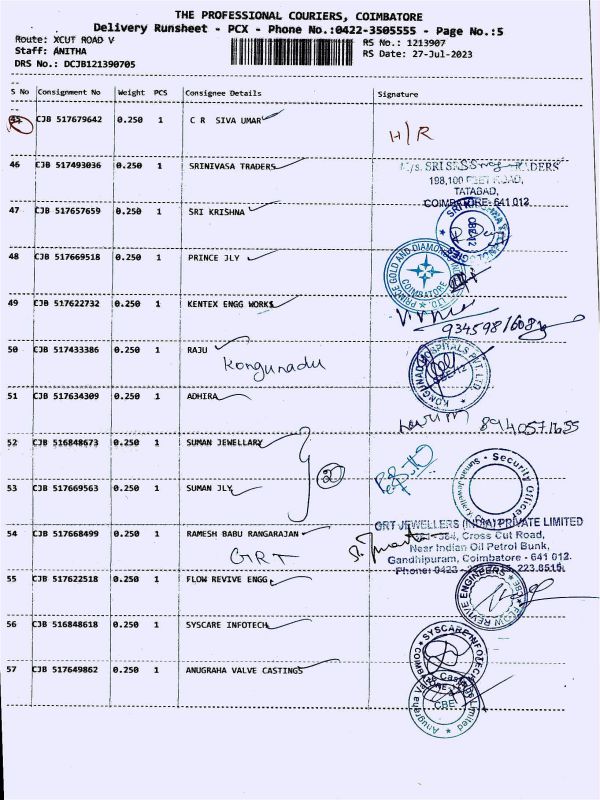 THE PROFESSIONAL COURIERS, COIMBATORE
Delivery Runsheet - PCX - Phone No.:0422-3505555 - Page No.:5
Route: XCUT ROAD V RS No.: 1213907
Staff: ANITHA RS Date: 27-Jul-2023
DRS No.: DCJB121390705
S No Consignment No Weight PCS Consignee Details Signature
45 CJB 517679642 0.250 1 C R SIVA UMAR
H/R
46 CJB 517493036 0.250 1 SRINIVASA TRADERS
TATABAD,
COIMBATORE- 641 012.
47 CJB 517657659 0.250 1 SRI KRISHNA
48 CJB 517669518 0.250 1 PRINCE JLY
PRIME GOLD AND DIAMOND
COIMBATORE
49 CJB 517622732 0.250 1 KENTEX ENGG WORKS
50 CJB 517433386 0.250 1 RAJU
Kongunadu
KONGUNAD HOSPITALS PVT. LTD.
51 CJB 517634309 0.250 1 ADHIRA
52 CJB 516848673 0.250 1 SUMAN JEWELLARY
2
53 CJB 517669563 0.250 1 SUMAN JLY
Security Officer
54 CJB 517668499 0.250 1 RAMESH BABU RANGARAJAN
GRT
GRT JEWELLERS (INDIA) PRIVATE LIMITED
Cross Cut Road,
Near Indian Oil Petrol Bunk,
Gandhipuram, Coimbatore - 641 012.
55 CJB 517622518 0.250 1 FLOW REVIVE ENGG
FLOW REVIVE ENGINEERS
CBE
56 CJB 516848618 0.250 1 SYSCARE INFOTECH
SYSCARE INFOTECH
57 CJB 517649862 0.250 1 ANUGRAHA VALVE CASTINGS
Anugraha Valve Castings Limited
CBE